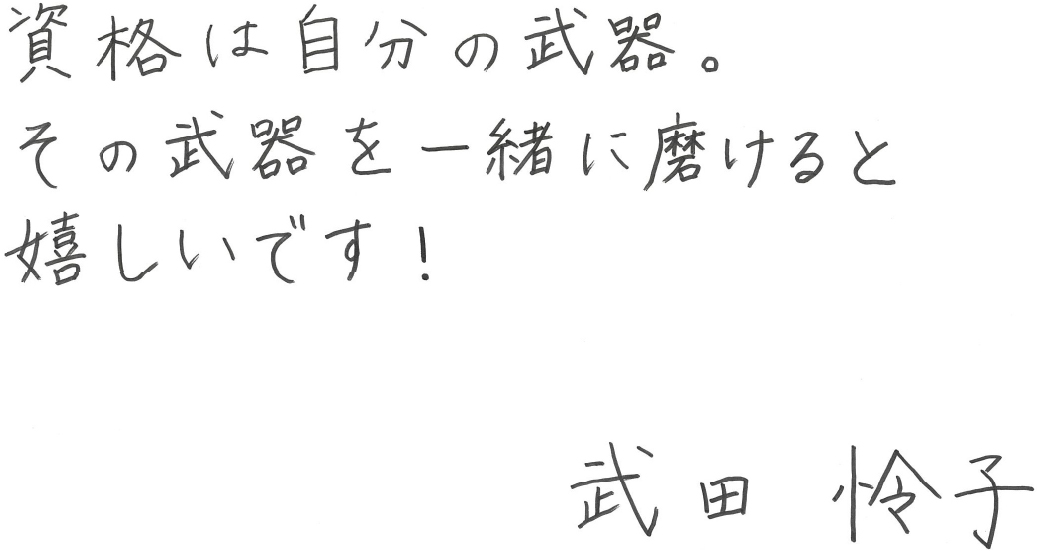 資格は自分の武器。
その武器を一緒に磨けると
嬉しいです!
武田 怜子